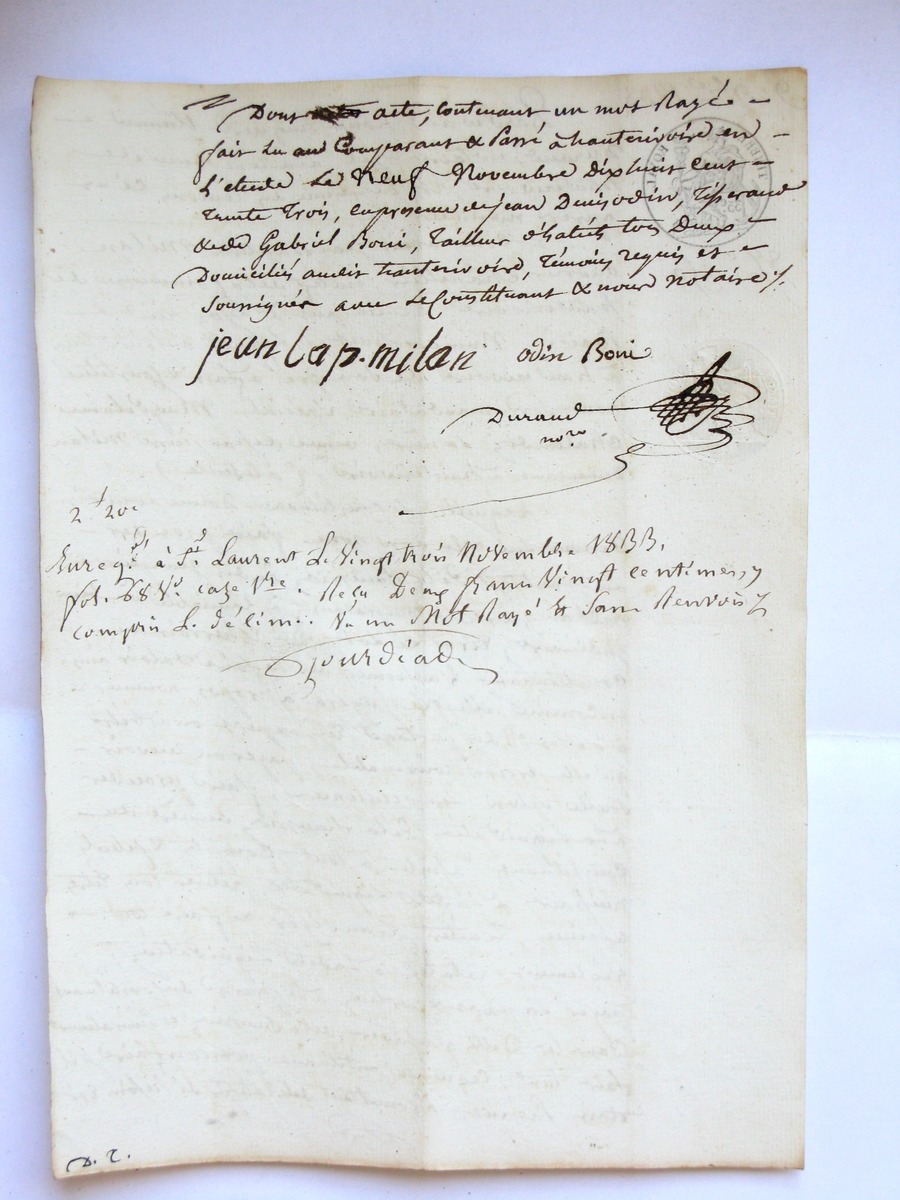 Dont acte, contenant un mot Rayé
fait Lu au Comparant & Passé à hauterivoire en
L'etude Le Neuf Novembre Dix huit Cent
Trente Trois, en presence de jean Denis odin, Tisserand
& de Gabriel Boni, Tailleur d'habits tous Deux
Domiciliés audit hauterivoire, Témoins requis et
Soussignés avec Le Constituant & nous notaire
jean Lap. milan odin Boni
Durand
nore
2f 20c
Enregé à St Laurent Le Vingt trois Novembre 1833,
fol. 68 Vo. case 1re. Reçu Deux francs Vingt centimes, y
compris Le décime. Vu un Mot Rayé et Sans Renvois
Jourdiad
D. T.